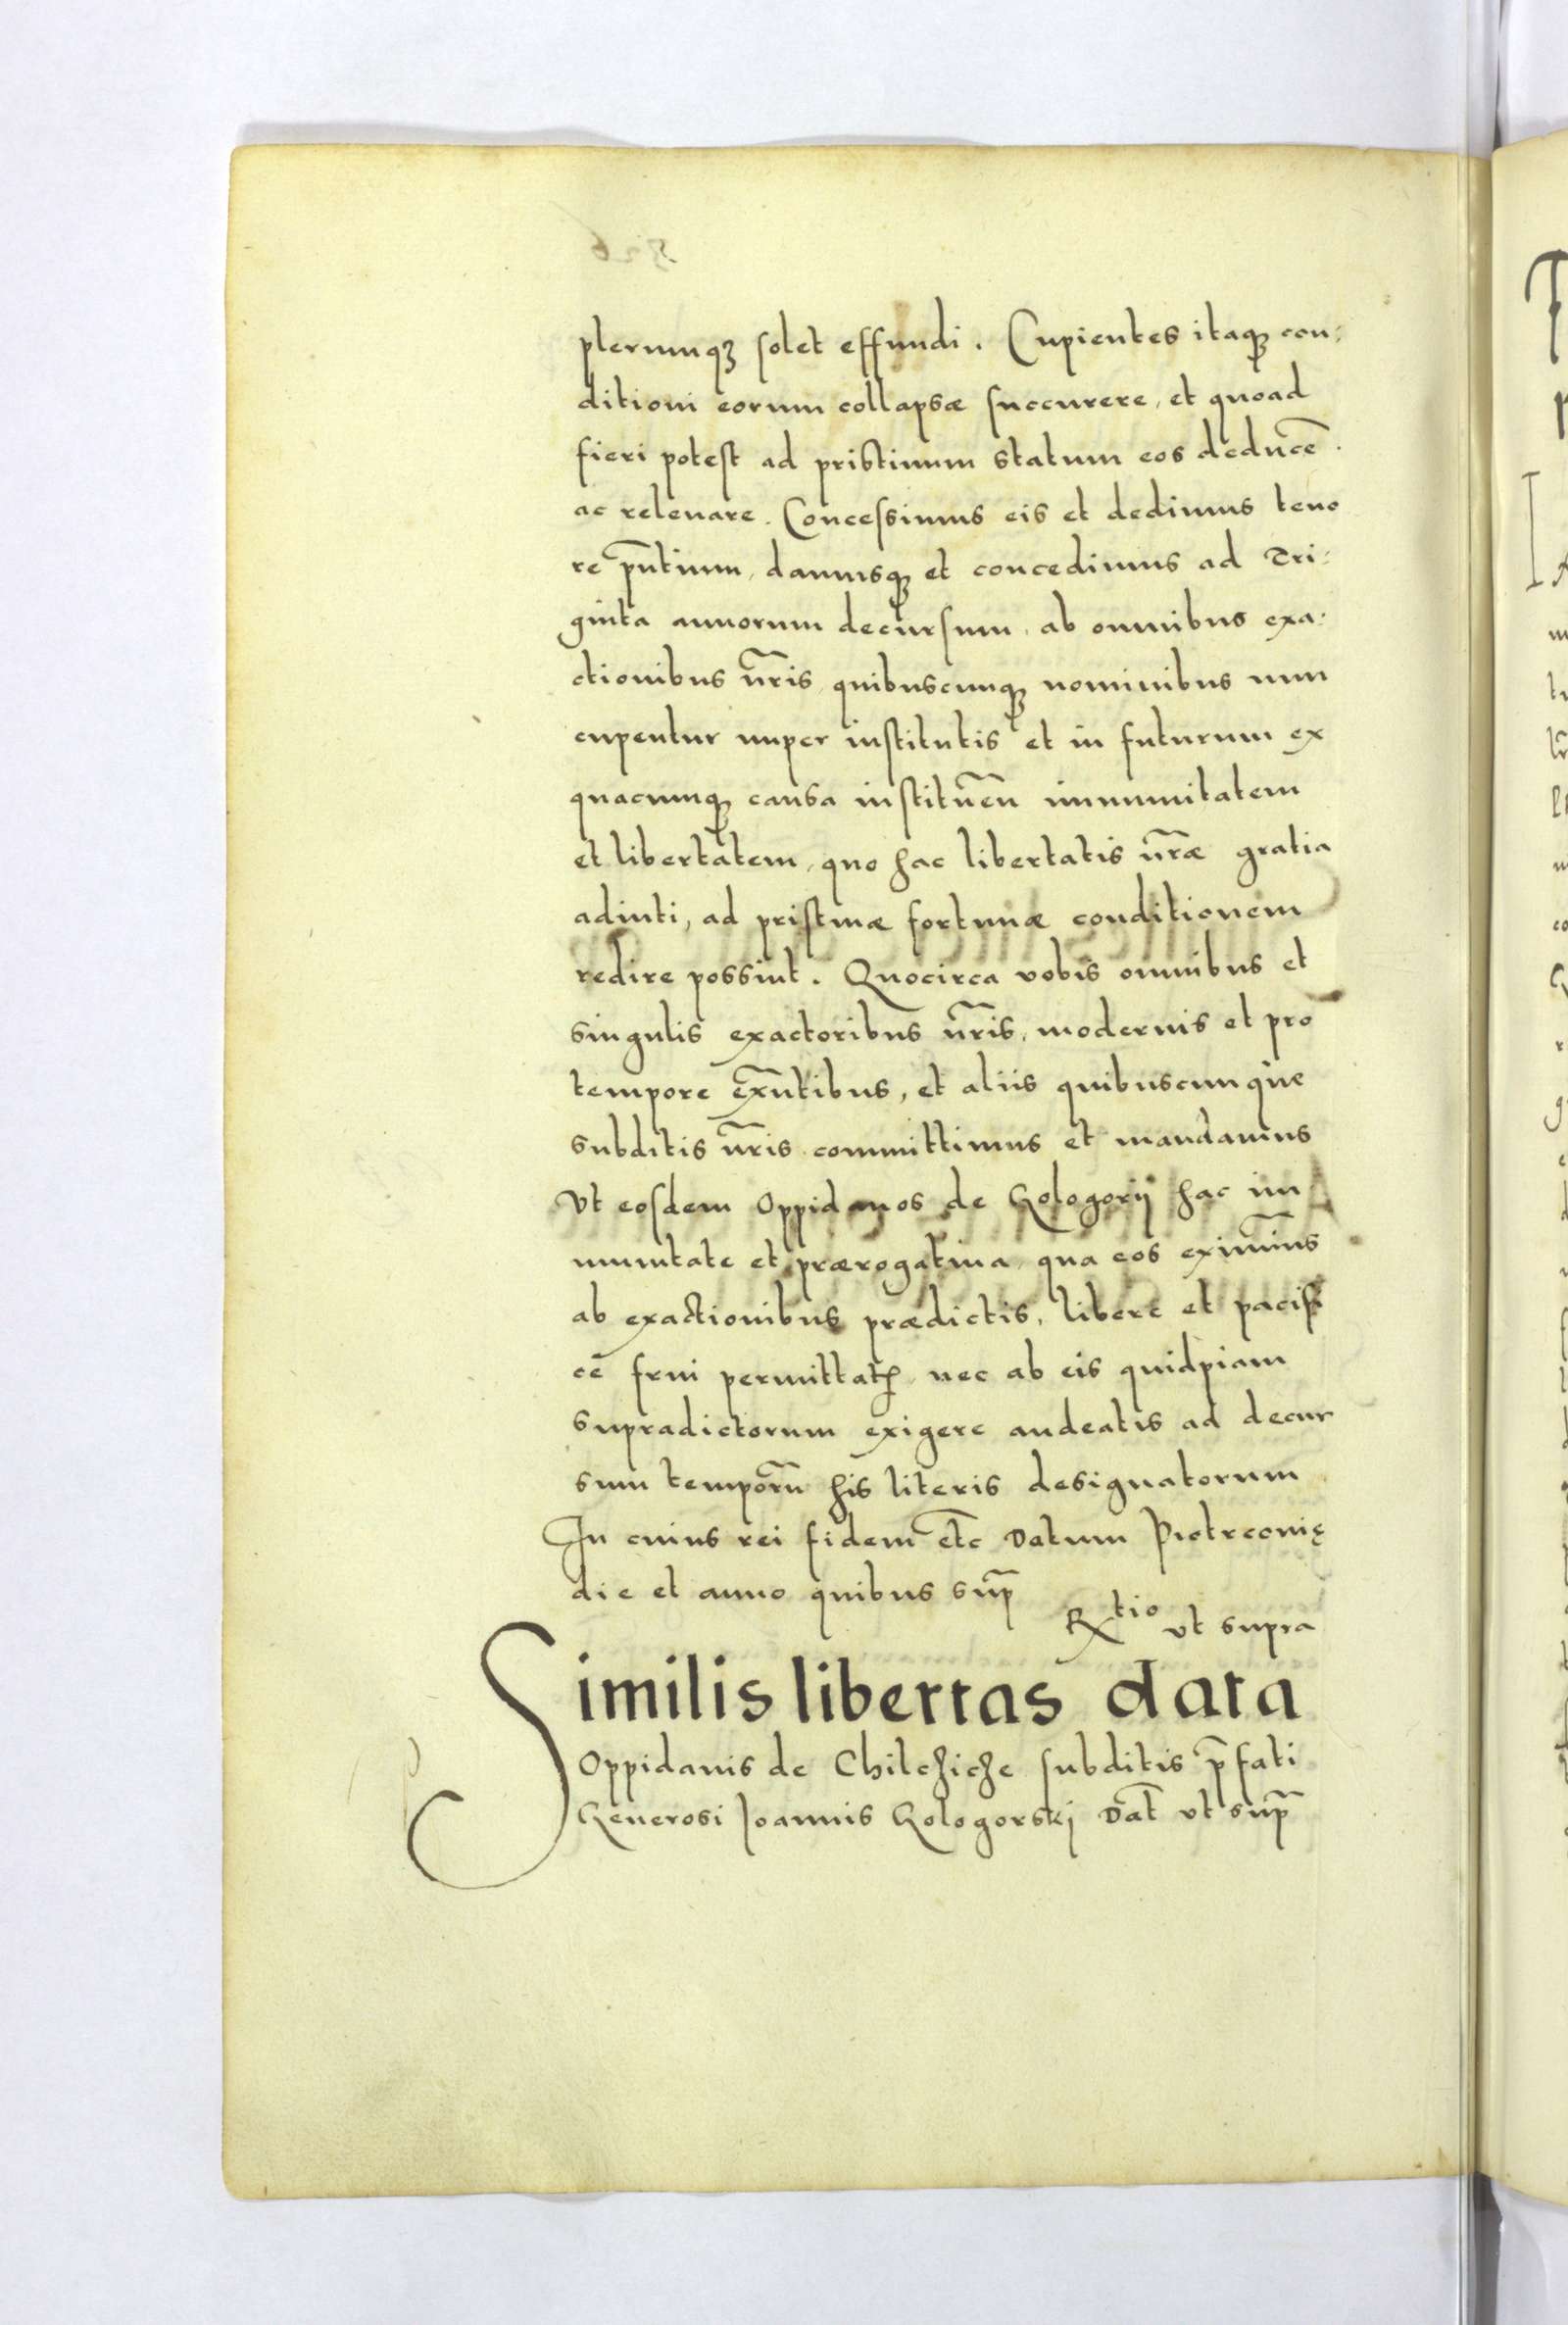 plerumqꝫ solet effundi. Cupientes itaqꝫ con:
ditioni eorum collapsæ succurere, et quoad
fieri potest ad pristinum statum eos deducē.
ac releuare. Concessimus eis et dedimus teno
re pñtium, damusqꝫ et concedimus ad Tri:
ginta annorum decursum, ab omnibus exa:
ctionibus nr̃is, quibuscunqꝫ nominibus nun
cupentur nuper institutis et in futurum ex
quacunqꝫ causa instituen̄ immunitatem
et libertatem, quo hac libertatis nr̃æ gratia
adiuti, ad pristinæ fortunæ conditionem
redire possint. Quocirca vobis omnibus et
singulis exactoribus nr̃is, modernis et pro
tempore exñtibus, et aliis quibuscunque
subditis nr̃is committimus et mandamus
Vt eosdem Oppidanos de Gologorij hac im
munitate et prærogatiua, qua eos eximim̃us
ab exactionibus prædictis, libere et pacifi
cē frui permittatꝭ, nec ab eis quidpiam
supradictorum exigere audeatis ad decur
sum temporũ his literis designatorum
In cuius rei fidem etc̃ Datum Piotrconię
die et anno quibus sup̃
Rtio vt supra
Similis libertas data
Oppidanis de Chilcziche subditis p̃fati
Generosi Ioannis Gologorskj Dat̃ vt sup̃